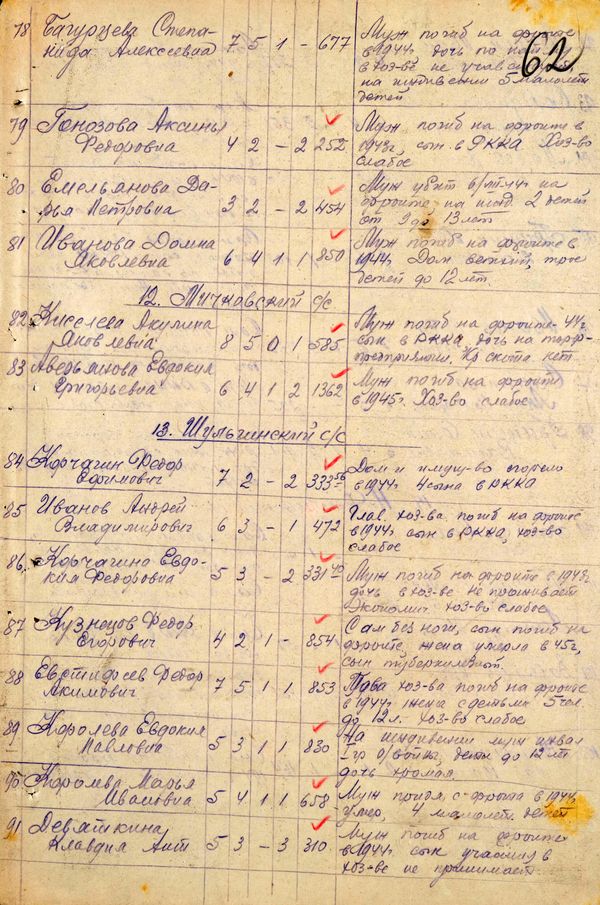 62
78 Багурцева Степа-
нида Алексеевна 7 5 1 - 677
Муж погиб на фронте
в 1944г. дочь по
в хоз-ве не
на иждивении 5 малолет
детей
79 Аксинья
Федоровна 4 2 - 2 252
Муж погиб на фронте в
1943г., сын в РККА Хоз-во
слабое
80 Емельянова Да-
рья Петровна 3 2 - 2 454
Муж убит на
фронте на ижд 2 детей
от 9 до 13 лет
81 Иванова Домна
Яковлевна 6 4 1 1 850
Муж погиб на фронте в
1944г. Дом ветхий, трое
детей до 12 лет.
12. Мичковский с/с
82 Киселева Акулина
Яковлевна 8 5 0 1 585
Муж погиб на фронте 44г
сын в РККА, дочь на торф-
предприятии. Кр скота нет.
83 Аверьянова Евдокия
Григорьевна 6 4 1 2 1362
Муж погиб на фронте
в 1945г. Хоз-во слабое
13. Шульгинский с/с
84 Корчагин Федор
Ефимович 7 2 - 2 333 56
Дом и имущ-во сгорело
в 1944г 4 сына в РККА
85 Иванов Андрей
Владимирович 6 3 - 1 472
Глав. хоз-ва погиб на фронте
в 1944г сын в РККА, хоз-во
слабое
86 Корчагина Евдо-
кия Федоровна 5 3 - 2 331 40
Муж погиб на фронте в 1943г
дочь в хоз-ве не проживает
Экономич. хоз-во слабое
87 Кузнецов Федор
Егорович 4 2 1 - 854
Сам без ноги, сын погиб на
фронте, жена умерла в 45г,
сын
88 Евстифеев Федор
Акимович 7 5 1 1 853
Глава хоз-ва погиб на фронте
в 1944г жена с детьми 5 чел.
до 12 л. хоз-во слабое
89 Королева Евдокия
Павловна 5 3 1 1 830
На иждивении муж инвал
I гр О/войны, дети до 12 лет
дочь хромая.
90 Королева Марья
Ивановна 5 4 1 1 658
Муж придя с фронта в 1944г
умер, 4 малолетн. детей
91 Девяткина
Клавдия Ант 5 3 - 3 310
Муж погиб на фронте
в 1944г. сын участия в
хоз-ве не принимает